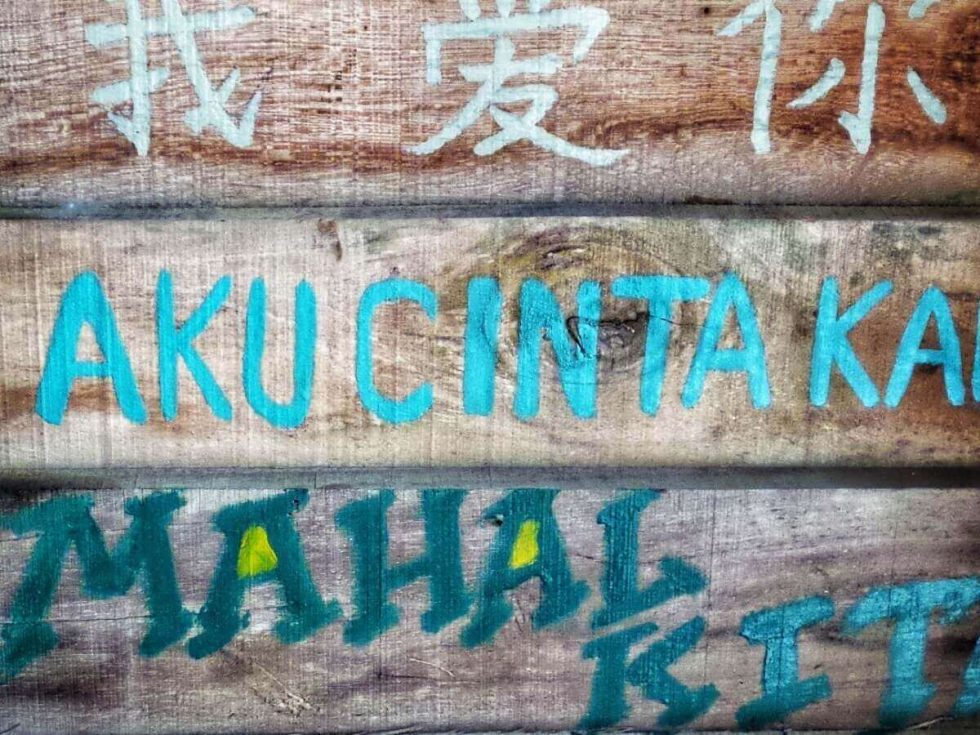 我爱你
AKU CINTA KA
MAHAL
KIT